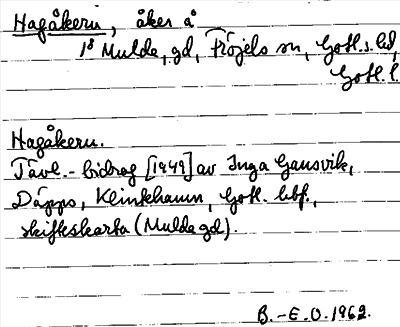 Hagåkern, åker å
1⁸ Mulde, gd, Fröjels sn, Gotl. s. hd,
Gotl. l.
Hagåkern.
Tävl.-bidrag [1949] av Inga Gansvik,
Däpps, Klintehamn, Gotl. hbf.,
skifteskarta (Mulde gd).
B.-E.O. 1962.